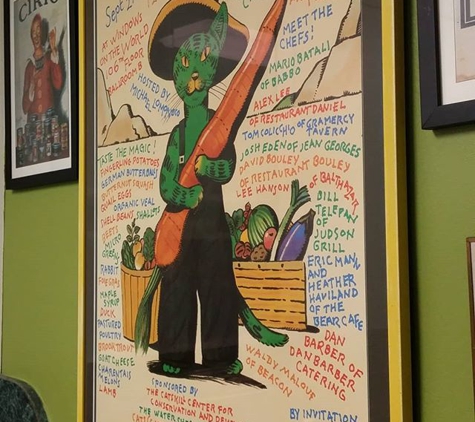 CIRC
Sept 2
AT WINDOWS
ON THE WORLD
106TH FLOOR
BALLROOM
HOSTED BY
MICHAEL LOMONACO
MEET THE
CHEFS!
MARIO BATALI
OF BABBO
ALEX LEE
OF RESTAURANT DANIEL
TOM COLICCHIO OF GRAMERCY
TAVERN
JOSH EDEN OF JEAN GEORGES
DAVID BOULEY
OF RESTAURANT BOULEY
LEE HANSON OF BALTHAZAR
BILL
TELEPAN
OF
JUDSON
GRILL
ERIC MANN
AND
HEATHER
HAVILAND
OF THE
BEAR CAFE
DAN
BARBER OF
DAN BARBER
CATERING
WALDY MALOUF
OF BEACON
TASTE THE MAGIC!
FINGERLING POTATOES
GERMAN BUTTERBALLS
BUTTERNUT SQUASH
QUAIL EGGS
ORGANIC VEAL
SHELL BEANS SHALLOTS
BEETS
MICRO
GREENS
RABBIT
FOIE GRAS
MAPLE
SYRUP
DUCK
PASTURED
POULTRY
BROOK TROUT
GOAT CHEESE
CHARENTAIS
MELONS
LAMB
SPONSORED BY
THE CATSKILL CENTER FOR
CONSERVATION AND DEVE
THE WATERSH
BY INVITATION